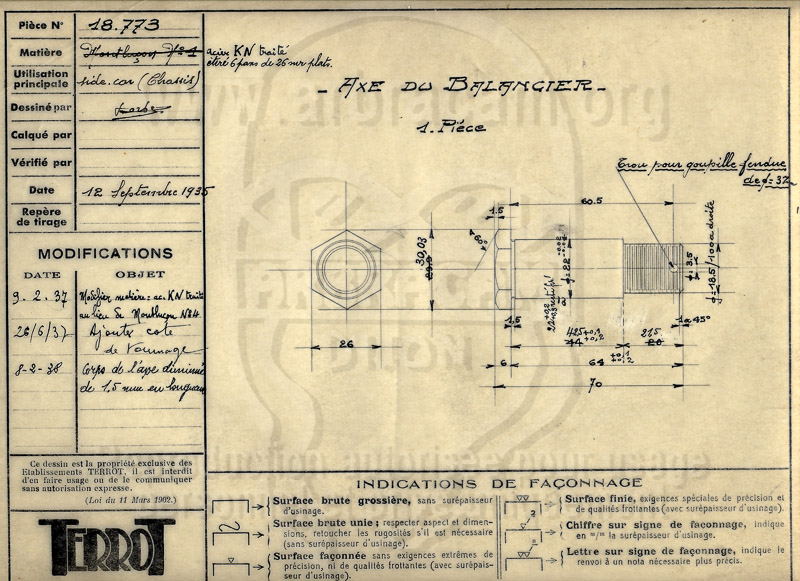 Pièce N° 18.773
Matière Montluçon N°4 acier KN traité
étiré 6 pans de 26 sur plats.
Utilisation
principale side-car (Chassis)
Dessiné par
Calqué par
Vérifié par
Date 12 Septembre 1935
Repère
de tirage
- AXE DU BALANCIER -
1. Pièce
Trou pour goupille fendue
de φ= 3%
MODIFICATIONS
DATE OBJET
9. 2. 37 Modifier matière: ac. KN traité
au lieu de Montluçon N°4.
26/6/37 Ajouter cote
de
8-2-38 Corps de l'axe diminué
de 1,5 mm en longueur
60.5
1.5
60°
30,03
26
22
3.5
φ= 18.5/100 à droite
1.5
42.5 +0,1 +0,2
44
21.5
20
1 à 45°
6
64 +0,1 +0,2
70
Ce dessin est la propriété exclusive des
Etablissements TERROT, il est interdit
d'en faire usage ou de le communiquer
sans autorisation expresse.
(Loi du 11 Mars 1902.)
TERROT
INDICATIONS DE FAÇONNAGE
Surface brute grossière, sans surépaisseur
d'usinage.
Surface brute unie; respecter aspect et dimen-
sions, retoucher les rugosités s'il est nécessaire
(sans surépaisseur d'usinage).
Surface façonnée sans exigences extrêmes de
précision, ni de qualités frottantes (avec surépais-
seur d'usinage).
Surface finie, exigences spéciales de précision et
de qualités frottantes (avec surépaisseur d'usinage).
2
Chiffre sur signe de faconnage, indique
en m/m la surépaisseur d'usinage.
Lettre sur signe de façonnage, indique le
renvoi à un nota nécessaire plus précis.